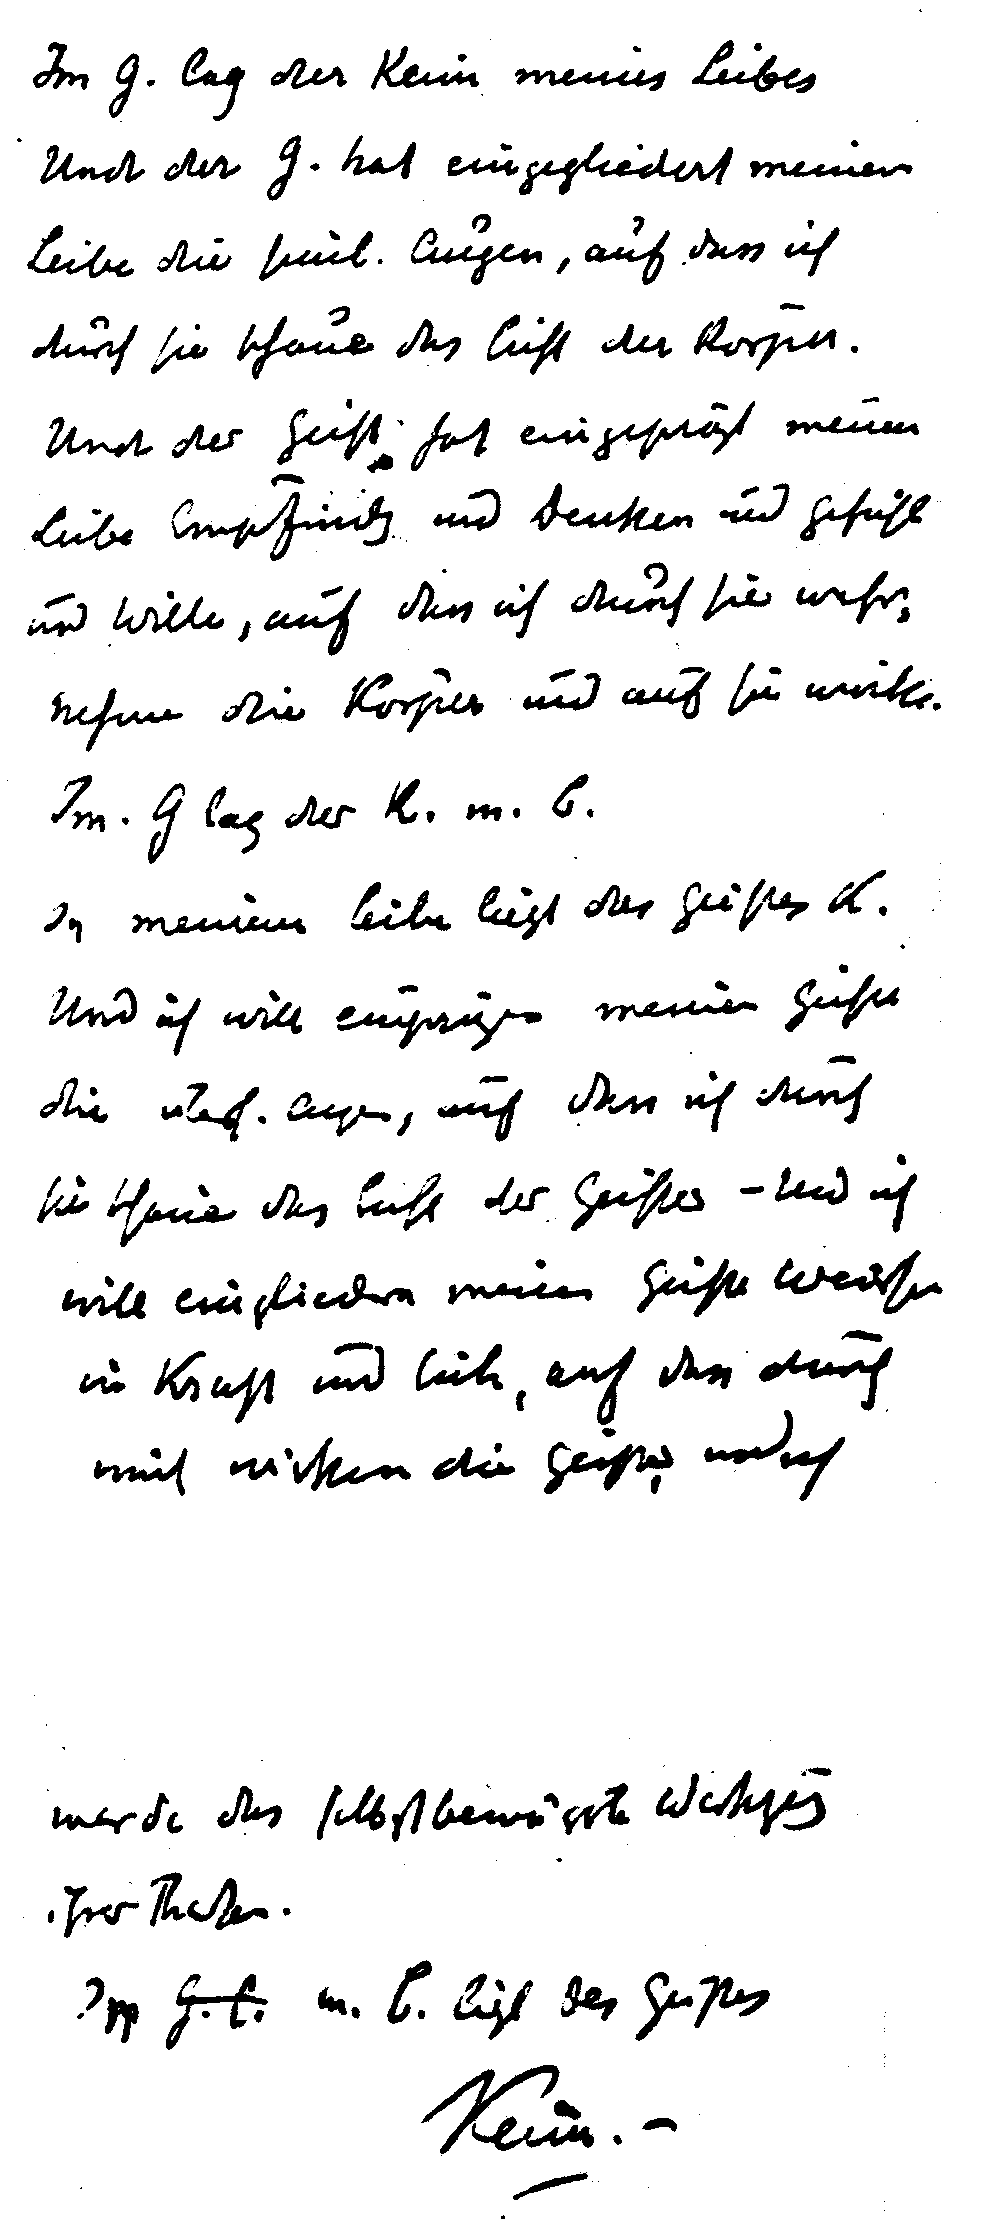 Im G. lag der Keim meines Leibes
Und der G. hat eingegliedert meinem
Leibe die sinnl. Augen, auf dass ich
durch sie schaue das Licht der Körper.
Und der Geist hat eingeprägt meinem
Leibe Empfindg und Denken und Gefühl
und Wille, auf dass ich durch sie wahr=
nehme die Körper und auf sie wirke.
Im. G lag der K. m. L.
In meinem Leibe liegt des Geistes K.
Und ich will einprägen meinem Geiste
die übers. Augen, auf dass ich durch
sie schaue das Licht der Geister – Und ich
will eingliedern meinem Geiste Weisheit
in Kraft und Liebe, auf dass durch
mich wirken die Geister und ich
werde das selbstbewusste Werkzeug
ihrer Thaten.
In m. L. liegt des Geistes
Keim. –